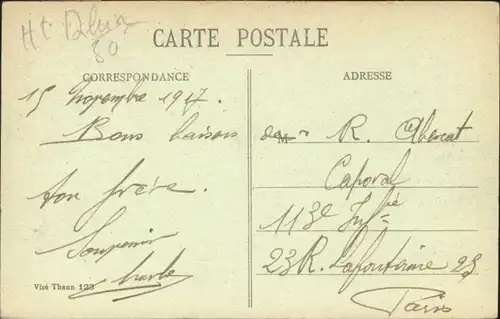 Ht Rhin
80
CARTE POSTALE
CORRESPONDANCE
ADRESSE
15 Novembre 1917.
Bons baisers
ton frère.
Souvenir
Charles
M R.
Caporal
113e Infie
23 R. Lafontaine 23
Paris
Visé Thann 123